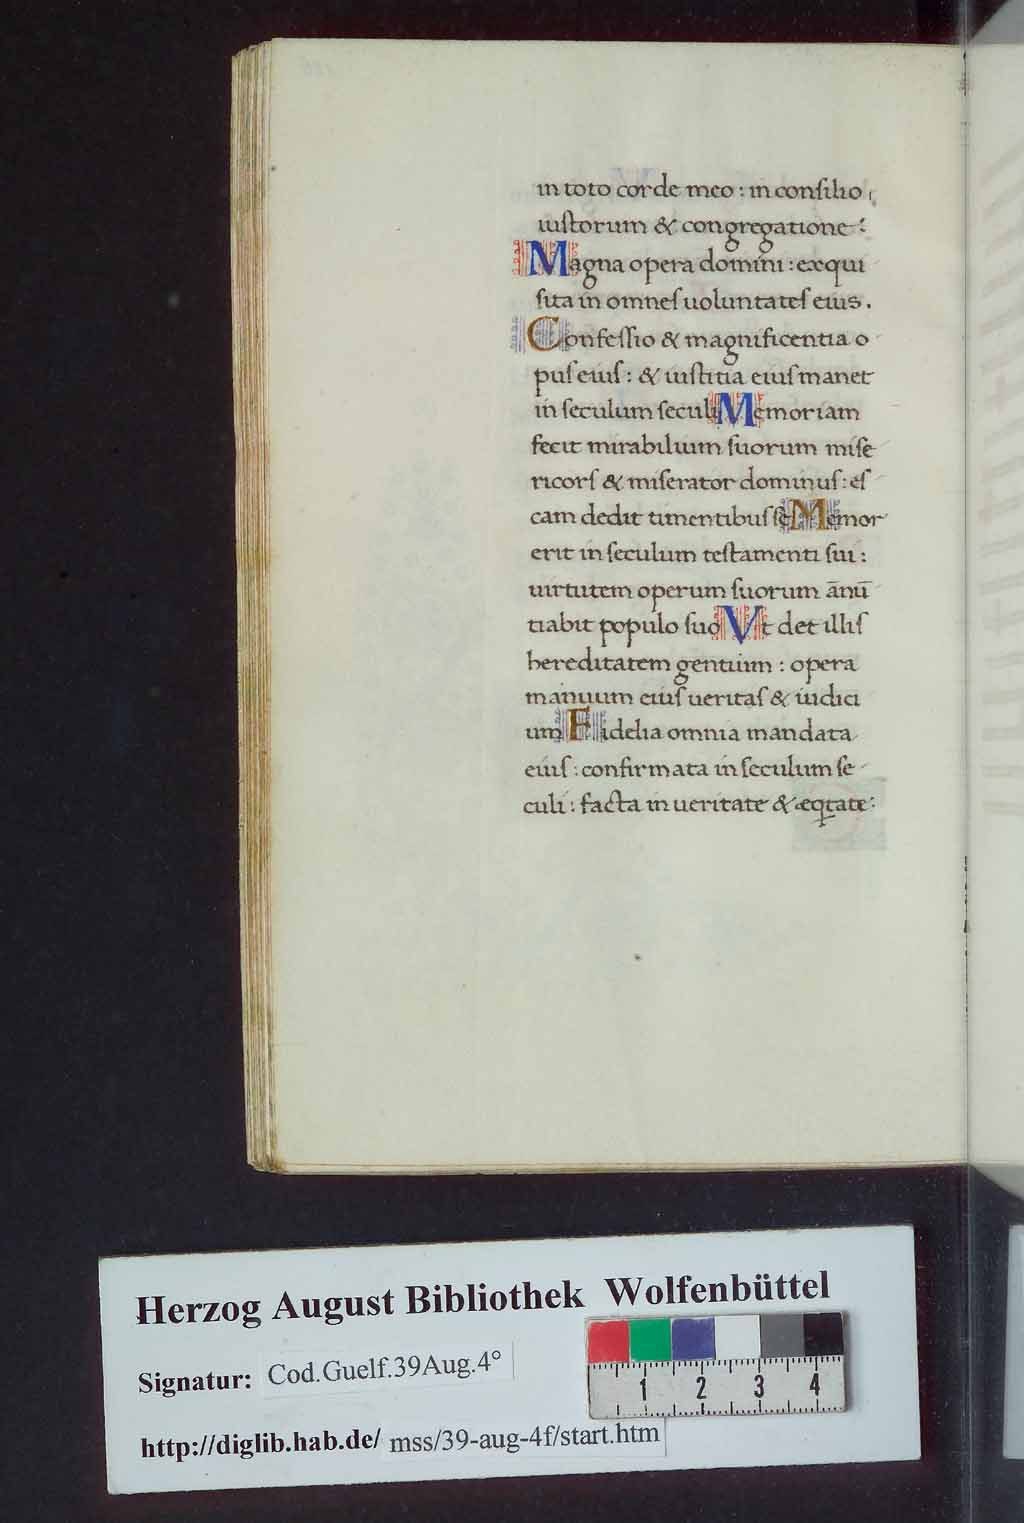 in toto corde meo : in consilio
iustorum & congregatione :
Magna opera domini : exqui
sita in omnes uoluntates eius .
Confessio & magnificentia o
pus eius : & iustitia eius manet
in seculum seculi Memoriam
fecit mirabilium suorum mise
ricors & miserator dominus : es
cam dedit timentibus se Memor
erit in seculum testamenti sui :
uirtutem operum suorum ānū
tiabit populo suo Vt det illis
hereditatem gentium : opera
manuum eius ueritas & iudici
um Fidelia omnia mandata
eius : confirmata in seculum se
culi : facta in ueritate & æq̣tate :
Herzog August Bibliothek Wolfenbüttel
Signatur: Cod.Guelf.39Aug.4°
http://diglib.hab.de/ mss/39-aug-4f/start.htm
1 2 3 4